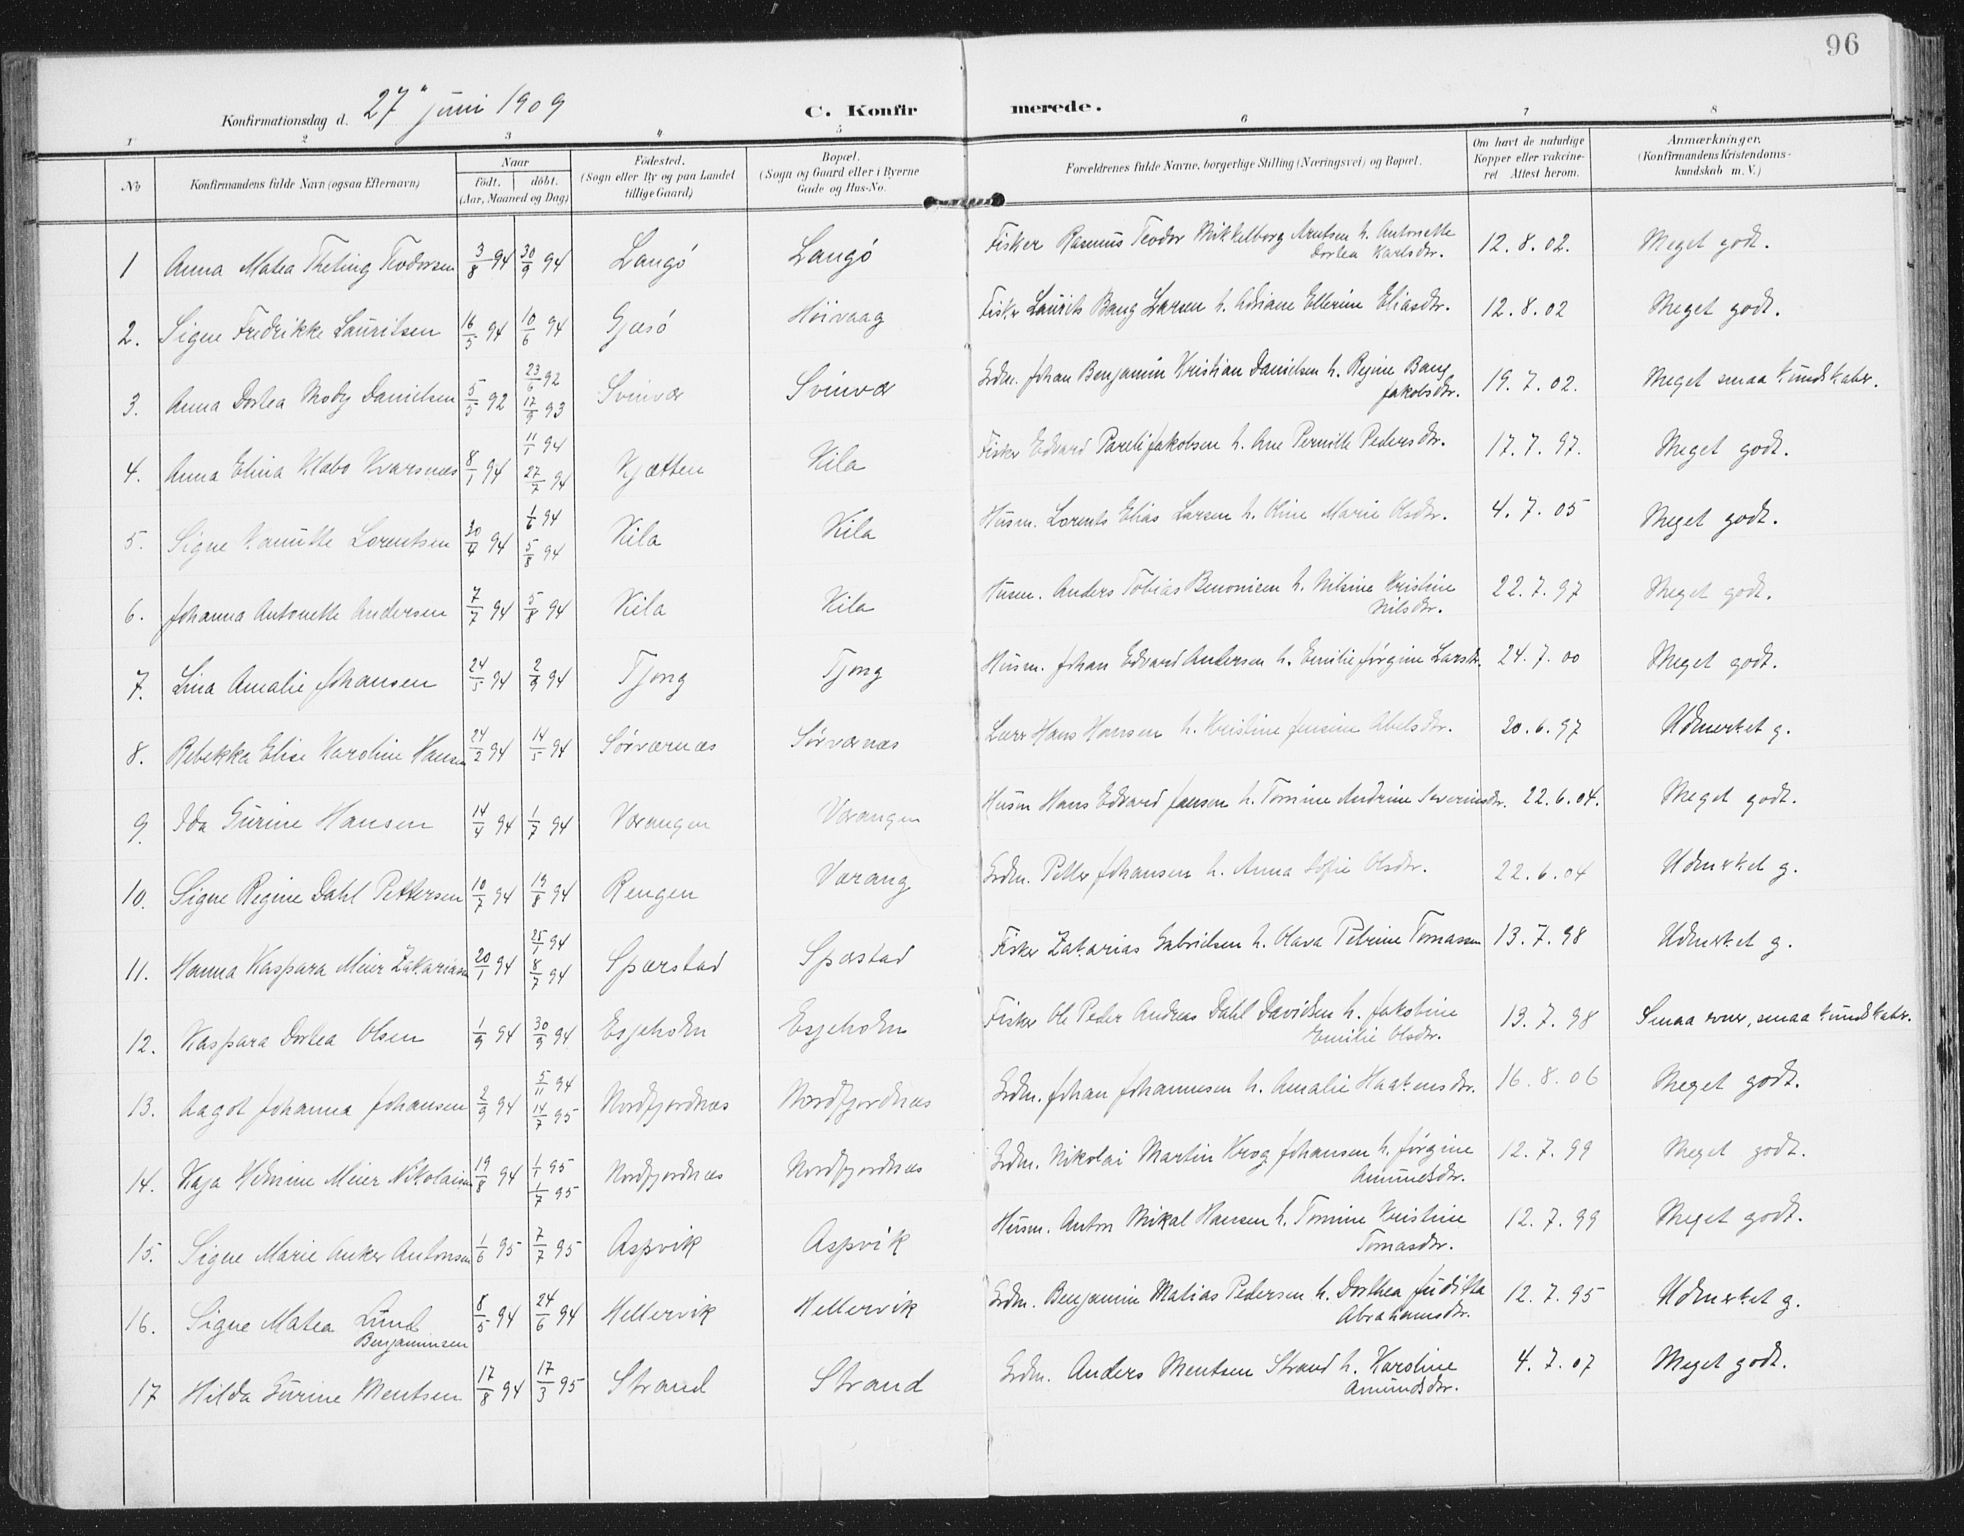 96
Konfirmationsdag d. 27 juni 1909 C. Konfirmerede.
1 2 3 4 5 6 7 8
No
Konfirmandens fulde Navn (ogsaa Efternavn)
Naar
födt. döbt.
(Aar, Maaned og Dag)
Födested.
(Sogn eller By og paa Landet tillige Gaard)
Bopæl.
(Sogn og Gaard eller i Byerne Gade og Hus-No.
Forældrenes fulde Navne, borgerlige Stilling (Næringsvei) og Bopæl.
Om havt de naturlige Kopper eller vakcineret Attest herom.
Anmærkninger.
(Konfirmandens Kristendomskundskab m. V.)
1 Anna Matea Theting Teodorsen 3/8 94 30/9 94 Langö Langö Fisker Rasmus Teodor Mikkelborg Arntsen h. Antonette Dortea Karlsdtr. 12.8.02. Meget godt.
2. Signe Fredrikke Lauritsen 16/5 94 10/6 94 Gjæsö Höivaag Fisker Laurits Bang Larsen h. Adriane Ellerine Eliasdtr. 12.8.02 Meget godt.
3. Anna Dortea Mody Danielsen 5/5 92 23/6 92 17/9 93 Svinvær Svinvær Grdm. Johan Benjamin Kristian Danielsen h. Regine Bang Jakobsdtr. 19.7.02. Meget smaa kundskaber.
4. Anna Elina Klabo Kvarsnæs 8/1 94 11/1 94 27/7 94 Kjætten Kila Fisker Edvard Pareli Jakobsen h. Ane Pernille Pedersdtr. 17.7.97. Meget godt.
5. Signe Lorentsen 30/4 94 1/6 94 5/8 94 Kila Kila Husm. Lorents Elias Larsen h. Oline Marie Olsdtr. 4.7.05 Meget godt.
6. Johanna Antonette Andersen 7/7 94 5/8 94 Kila Kila Husm. Anders Tobias Benonisen h. Nilsine Kristine Nilsdtr. 22.7.97 Meget godt.
7. Lina Amalie Johansen 24/5 94 2/9 94 Tjong Tjong Husm. Johan Edvard Andersen h. Emilie Jörgine Larsdtr. 24.7.00 Meget godt.
8. Rebekka Elise Karoline Hansen 24/2 94 14/5 94 Sörværnæs Sörværnæs Lærer Hans Hansen h. Kristine Jensine Abelsdtr. 20.6.97 Udmerket g.
9. Ida Gurine Hansen 14/4 94 1/7 94 Værangen Værangen Husm Hans Edvard Jensen h. Tomine Andrine Severinsdtr. 22.6.04. Meget godt.
10. Signe Regine Dahl Pettersen 10/7 94 19/8 94 Rengen Værang Grdm. Petter Johansen h. Anna Sofie Olsdtr. 22.6.04 Udmerket g.
11. Hanna Kaspara Meier Zakariasen 20/1 94 25/1 94 8/7 94 Spærstad Spæstad Fisker Zakarias Gabrielsen h. Olava Petrine Tomassen 13.7.98 Udmerket g.
12. Kaspara Dortea Olsen 1/9 94 30/9 94 Esjeholm Esjeholm Fisker Ole Peder Andreas Dahl Davidsen h. Jakobine Emilie Olsdtr. 13.7.98 Smaa evner, smaa kundskaber.
13. Aagot Johanna Johansen 2/9 94 5/11 94 14/7 95 Nordfjordnæs Nordfjordnæs Grdm. Johan Johannesen h. Amalie Haakensdtr. 16.8.06 Meget godt.
14. Kaja Helmine Meier Nikolaisen 19/8 94 1/1 95 1/7 95 Nordfjordnæs Nordfjordnæs Grdm. Nikolai Martin Krog Johansen h. Jörgine Amundsdtr. 12.7.99 Meget godt.
15. Signe Marie Anker Antonsen 1/6 95 7/7 95 Aspvik Aspvik Husm. Anton Mikal Hansen h. Tomine Kristine Tomasdtr. 12.7.99 Meget godt.
16. Signe Matea Lund Benjaminsen 8/5 94 24/6 94 Hellervik Hellervik Grdm. Benjamin Matias Pedersen h. Dorthea Judikta Abrahamsdtr. 12.7.95 Udmerket g.
17 Hilda Gurine Mentsen 17/8 94 17/3 95 Strand Strand Grdm. Anders Mentsen Strand h. Karoline Amundsdtr. 4.7.07 Meget godt.